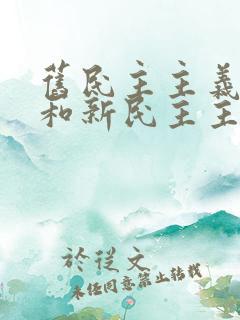 舊民主主義
和新民主主
於從文
未经同意禁止转载